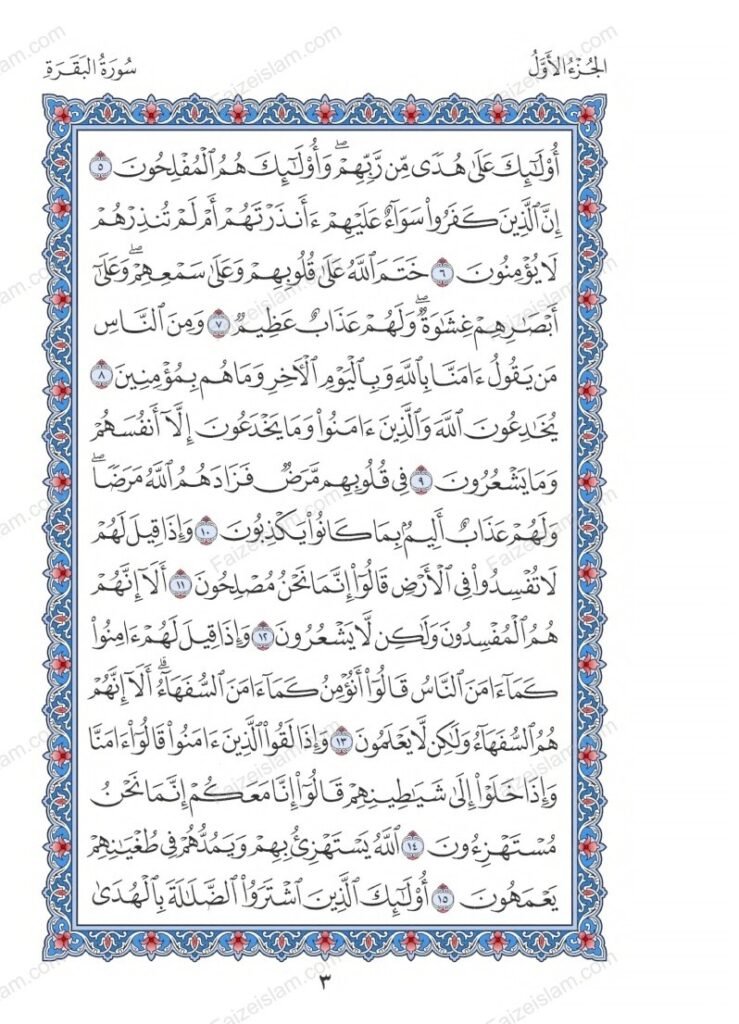 الجُزْءُ الأَوَّلُ
سُورَةُ البَقَرَةِ
أُوْلَٰٓئِكَ عَلَىٰ هُدٗى مِّن رَّبِّهِمۡۖ وَأُوْلَٰٓئِكَ هُمُ ٱلۡمُفۡلِحُونَ ٥
إِنَّ ٱلَّذِينَ كَفَرُواْ سَوَآءٌ عَلَيۡهِمۡ ءَأَنذَرۡتَهُمۡ أَمۡ لَمۡ تُنذِرۡهُمۡ
لَا يُؤۡمِنُونَ ٦ خَتَمَ ٱللَّهُ عَلَىٰ قُلُوبِهِمۡ وَعَلَىٰ سَمۡعِهِمۡۖ وَعَلَىٰٓ
أَبۡصَٰرِهِمۡ غِشَٰوَةٞۖ وَلَهُمۡ عَذَابٌ عَظِيمٞ ٧ وَمِنَ ٱلنَّاسِ
مَن يَقُولُ ءَامَنَّا بِٱللَّهِ وَبِٱلۡيَوۡمِ ٱلۡأٓخِرِ وَمَا هُم بِمُؤۡمِنِينَ ٨
يُخَٰدِعُونَ ٱللَّهَ وَٱلَّذِينَ ءَامَنُواْ وَمَا يَخۡدَعُونَ إِلَّآ أَنفُسَهُمۡ
وَمَا يَشۡعُرُونَ ٩ فِي قُلُوبِهِم مَّرَضٞ فَزَادَهُمُ ٱللَّهُ مَرَضٗاۖ
وَلَهُمۡ عَذَابٌ أَلِيمُۢ بِمَا كَانُواْ يَكۡذِبُونَ ١٠ وَإِذَا قِيلَ لَهُمۡ
لَا تُفۡسِدُواْ فِي ٱلۡأَرۡضِ قَالُوٓاْ إِنَّمَا نَحۡنُ مُصۡلِحُونَ ١١ أَلَآ إِنَّهُمۡ
هُمُ ٱلۡمُفۡسِدُونَ وَلَٰكِن لَّا يَشۡعُرُونَ ١٢ وَإِذَا قِيلَ لَهُمۡ ءَامِنُواْ
كَمَآ ءَامَنَ ٱلنَّاسُ قَالُوٓاْ أَنُؤۡمِنُ كَمَآ ءَامَنَ ٱلسُّفَهَآءُۗ أَلَآ إِنَّهُمۡ
هُمُ ٱلسُّفَهَآءُ وَلَٰكِن لَّا يَعۡلَمُونَ ١٣ وَإِذَا لَقُواْ ٱلَّذِينَ ءَامَنُواْ قَالُوٓاْ ءَامَنَّا
وَإِذَا خَلَوۡاْ إِلَىٰ شَيَٰطِينِهِمۡ قَالُوٓاْ إِنَّا مَعَكُمۡ إِنَّمَا نَحۡنُ
مُسۡتَهۡزِءُونَ ١٤ ٱللَّهُ يَسۡتَهۡزِئُ بِهِمۡ وَيَمُدُّهُمۡ فِي طُغۡيَٰنِهِمۡ
يَعۡمَهُونَ ١٥ أُوْلَٰٓئِكَ ٱلَّذِينَ ٱشۡتَرَوُاْ ٱلضَّلَٰلَةَ بِٱلۡهُدَىٰ
٣
Faizeislam.com